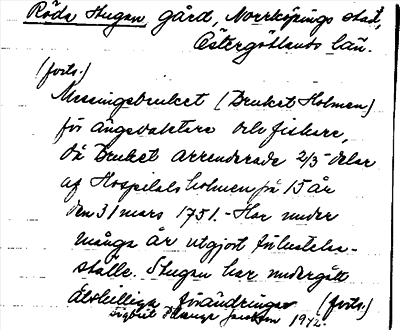 Röda Stugan gård, Norrköpings stad,
Östergötlands län.
(forts.)
Messingsbruket (Bruket Holmen)
för ängsvaktare och fiskare,
då Bruket arrenderade 2/3-delar
af Hospitalsholmen på 15 år
den 31 mars 1751. - Har under
många år utgjort förlustelse-
ställe. Stugan har undergått
åtskilliga förändringar (forts.)
Sigbrit Plænge Jacobson 1942